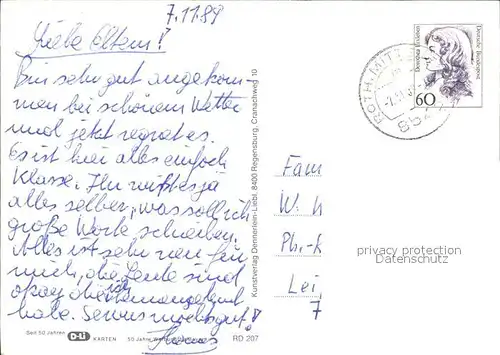 7.11.89
Liebe Eltern!
Bin sehr gut angekom-
men bei schönem Wetter
und jetzt regnet es.
Es ist hier alles einfach
Klasse. Ihr wißt es ja
alles selber, was soll ich
große Worte schreiben.
Alles ist sehr neu für
mich, die Leute sind
okay die ich
habe. Servus machts gut!
Deutsche Bundespost
Dorothea Erxleben
60
ROTH, MITT
Kunstverlag Dennerlein-Liebl, 8400 Regensburg, Cranachweg 10
Fam
W. h
Ph.-k
Lei,
7
privacy protection
Datenschutz
Seit 50 Jahren KARTEN 50 Jahre
RD 207